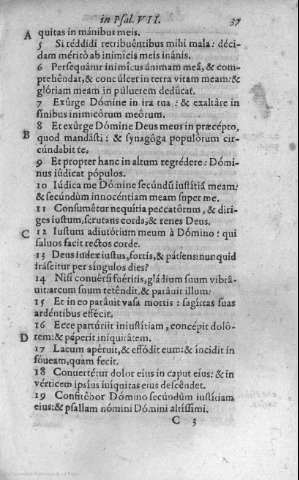 in Psal. VII. 37
A quitas in mánibus meis.
5 Si réddidi retribuéntibus mihi mala: déci-
dam méritò ab inimícis meis inánis.
6 Persequátur inimícus ánimam meã, & com-
prehéndat, & concúlcet in terra vitam meam: &
glóriam meam in púluerem dedúcat.
7 Exúrge Dómine in ira tua : & exaltáre in
fínibus inimicórum meórum.
B 8 Et exúrge Dómine Deus meus in præcépto,
quod mandásti: & synagóga populórum cir-
cúndabit te.
9 Et propter hanc in altum regrédere: Dómi-
nus iúdicat pópulos.
10 Iúdica me Dómine secundũ iustítiã meam:
& secúndùm innocéntiam meam super me.
11 Consumétur nequítia peccatórum, & díri-
ges iustum, scrutans corda, & renes Deus.
C 12 Iustum adiutórium meum à Dómino: qui
saluos facit rectos corde.
13 Deus iudex iustus, fortis, & pátiens: nunquid
iráscitur per síngulos dies?
14 Nisi conuérsi fuéritis, gládium suum vibrá-
uit: arcum suum teténdit, & paráuit illum.
15 Et in eo paráuit vasa mortis : sagíttas suas
ardéntibus effécit.
16 Ecce partúriit iniustítiam, concépit doló-
D rem: & péperit iniquitátem.
17 Lacum apéruit, & effódit eum: & íncidit in
fóueam, quam fecit.
18 Conuertétur dolor eius in caput eius: & in
vérticem ipsíus iníquitas eius descéndet.
19 Confitébor Dómino secúndùm iustítiam
eius: & psallam nómini Dómini altíssimi.
C 3